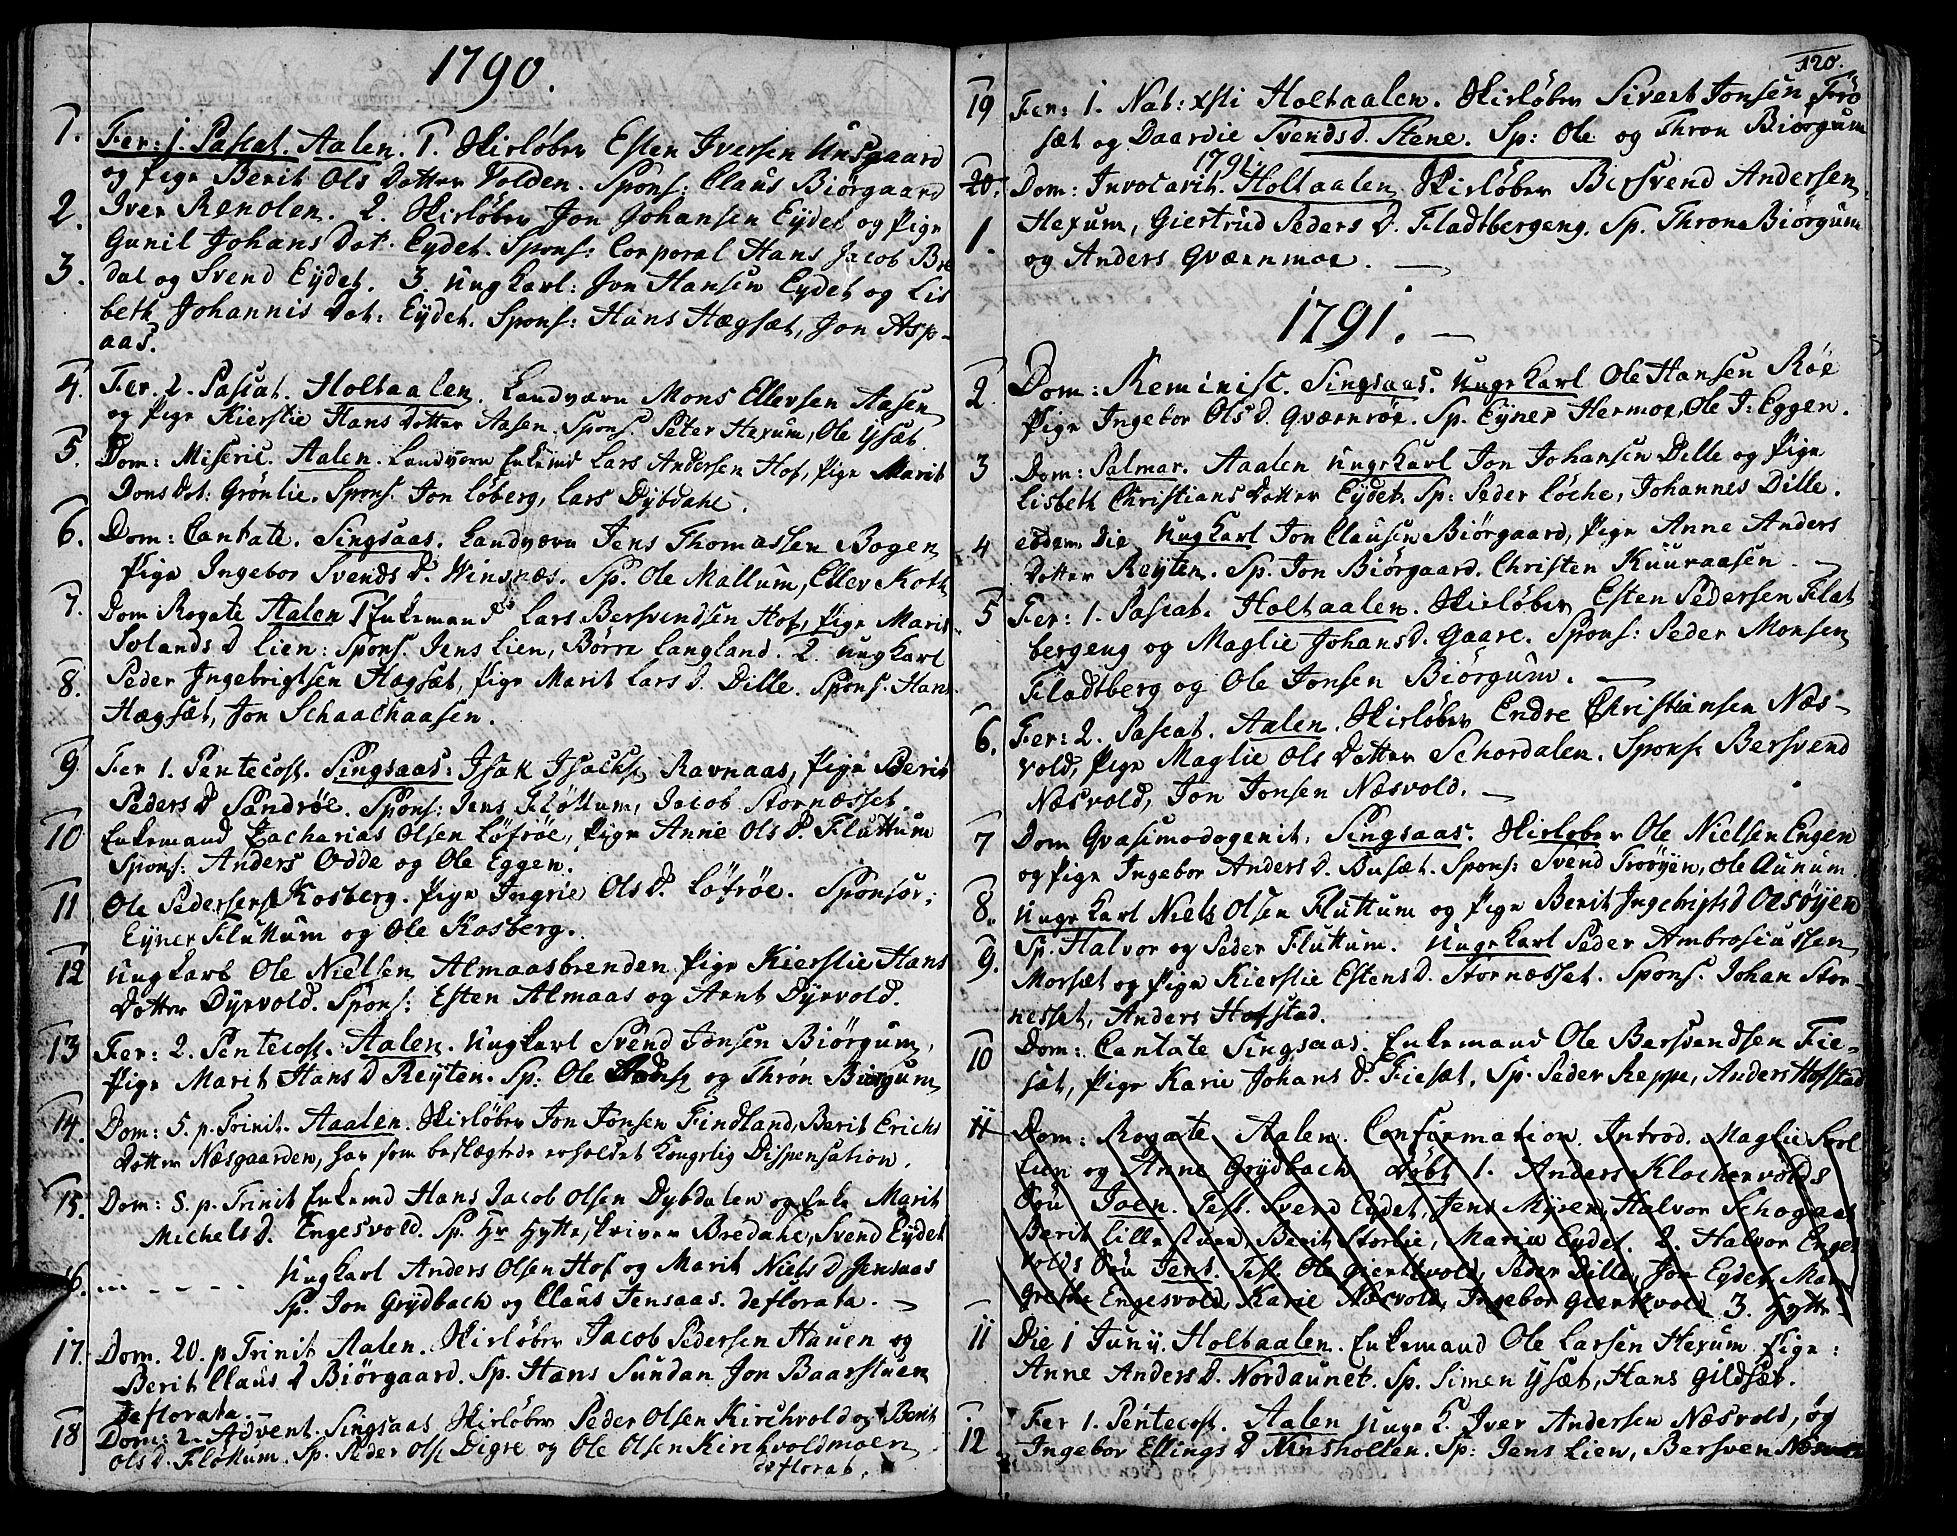 1790.
1. Fer: 1. Pascat. Aalen. 1. Skirløber Esten Iversen Unsgaard
og Pige Berit Ols Dotter Volden. Spons: Claus Biörgaard
2. Iver Renolen. 2. Skirløber Jon Johansen Eydet og Pige
Gunil Johans Dot. Eydet. Spons: Corporal Hans Jacob Bre
3. dal og Svend Eydet. 3. Ungkarl: Jon Hansen Eydet og Lis
beth Johannis Dot: Eydet. Spons: Hans Hægsæt, Jon Asp-
aas.
4. Fer. 2. Pascat. Holtaalen. Landværn Mons Ellevsen Aasen
og Pige Kierstie Hans Dotter Aasen. Spons. Peter Hexum, Ole Ysæt.
5. Dom: Miseric. Aalen. Landværn Enkemd Lars Andersen Hof, Pige Marit
Dons Dot: Grönlie. Spons. Jon Löberg, Lars Dybdahl.
6. Dom: Cantate. Singsaas. Landværn Jens Thomassen Bogen
Pige Ingebor Svends D. Winsnæs. Sp. Ole Mallum, Ellev Koth
7. Dom Rogate Aalen 1 Enkemand Lars Bersvendsen Hof, Pige Marit
Solands D Lien: Spons. Jens Lien, Börre Langland. 2. Ungkarl
8. Peder Ingebrigtsen Hægsæt, Pige Marit Lars D. Dille. Spons. Hans
Hægsæt, Jon Schaachaasen.
9 Fer 1. Pentecost. Singsaas: Isak Isachs Ravnaas, Pige Berit
Peders D Sandröe. Spons: Jens Flöttum, Jacob Stornæsset.
10 Enkemand Zacharias Olsen Löfröe, Pige Anne Ols D. Fluttum
Spons: Anders Odde og Ole Eggen.
11 Ole Pedersen Kosberg. Pige Ingrie Ols D. Löfröe. Sponsor:
Eyner Fluttum og Ole Kosberg.
12 Ungkarl Ole Nielsen Almaasbrenden Pige Kierstie Hans
Dotter Dyrvold. Spons: Esten Almaas og Arnt Dyrvold.
13 Fer: 2. Pentecost. Aalen. Ungkarl Svend Jonsen Biörgum,
Pige Marit Hans D Reyten. Sp: Ole og Thron Biörgum
14. Dom: 5. p. Trinit. Aaalen. Skirløber Jon Jonsen Findland, Berit Erichs
Dotter Næsgaarden, har som beslægtede erholdet Kongelig Dispensation.
15. Dom: 8. p. Trinit Enkemd Hans Jacob Olsen Dybdalen og Enke Marit
Michels D. Engesvold. Sp. Hr Hytteskriver Bredahl, Svend Eydet
16. Ungkarl Anders Olsen Hof og Marit Niels D Jensaas
Sp. Jon Grydbach og Claus Jensaas. deflorata.
17. Dom. 20. p Trinit Aalen. Skirløber Jacob Pedersen Hauen og
Berit Claus D Biörgaard. Sp. Hans Sundan Jon Baarstuen
deflorata.
18 Dom: 2. Advent. Singsaas Skirløber Peder Olsen Kirchvold og Berit
Ols D. Flöttum. Sp. Peder Ols Digre og Ole Olsen Kirchvoldmoen
deflorat.
120.
19 Fer: 1. Nat: xsti Holtaalen. Skirløber Sivert Jonsen Forö
sæt og Daardie Svends D. Stene. Sp: Ole og Thron Biörgum
1791.
20. Dom: Invocavit. Holtaalen Skirløber Bersvend Andersen
1. Hexum, Giertrud Peders D. Fladtbergeng. Sp. Thron Biörgum
og Anders Gværnmoe.
1791.
2 Dom: Reminisc. Singsaas. Ungekarl Ole Hansen Röe
Pige Ingebor Ols D. Gværnröe. Sp. Eyner Hermoe, Ole J: Eggen.
3 Dom: Palmar. Aaalen Ungekarl Jon Johansen Dille og Pige
Lisbeth Christians Dotter Eydet. Sp: Peder Löche, Johannes Dille.
4 eodem Die Ungkarl Jon Clausen Biörgaard, Pige Anne Anders
Dotter Reyten. Sp. Jon Biörgaard. Christen Kuuraasen
5 Fer: 1. Pascat. Holtaalen. Skirløber Esten Pedersen Flat
bergeng og Maglie Johans D. Gaare. Spons: Peder Monsen
Fladtberg og Ole Jonsen Biörgum.
6. Fer: 2. Pascat. Aalen. Skirløber Endre Christiansen Næs-
vold, Pige Maglie Ols Dotter Schordalen. Spons: Bersvend
Næsvold, Jon Jonsen Næsvold.
7 Dom Qvasimodogenit. Singsaas. Skirløber Ole Nielsen Engen
og Pige Ingebor Anders D. Busæt. Spons: Svend Troöyen, Ole Aunum.
8. Unge Karl Niels Olsen Fluttum og Pige Berit Ingebrigts D Olsöyen
9. Sp. Halvor og Peder Fluttum. Ungekarl Peder Ambrosiussen
Morsæt og Pige Kierstie Estens D. Stornæsset. Spons. Johan Stor-
nesset, Anders Hofstad.
10 Dom: Cantate Singsaas. Enkemand Ole Bersvendsen Fie-
sæt, Pige Karie Johans D. Fiesæt. Sp. Peder Reppe, Anders Hofstad
11 Dom: Rogate Aalen. Confirmation. Introd. Maglie
Lien og Anne Grydbach döbt 1. Anders Klochervolds
Sön Joen. Test. Svend Eydet, Jens Myren, Halvor Schogaas
Berit Lille stuen, Berit Storlie, Marie Eydet. 2. Halvor Enges
volds Sön Jens. Test Ole Giertsvold, Peder Dille, Jon Eydet. Mar
grethe Engesvold, Karie Næsvold, Ingebor Giertsvold 3. Hytte-
11 Die 1 Junij. Holtaalen. Enkemand Ole Larsen Hexum. Pige:
Anne Anders D. Nordaunet. Sp. Simen Ysæt, Hans Gildsæt.
12 Fer 1. Pentecost. Aalen Unge K. Iver Andersen Næsvold, og
Ingebor Ellings D Ninshollen. Sp: Jens Lien, Bersven Næsvold